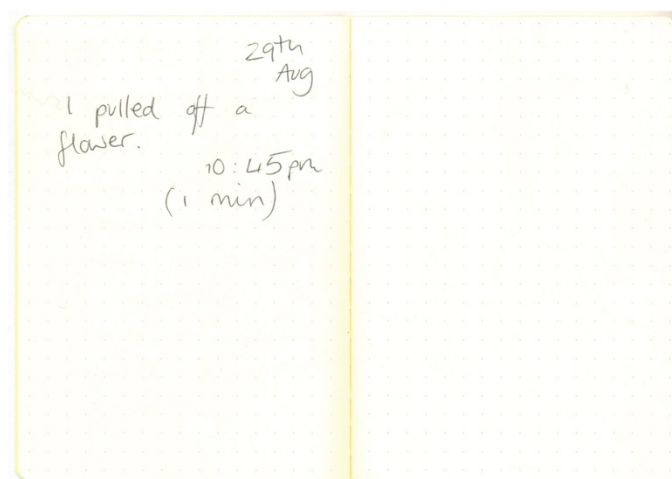 29th
Aug
I pulled off a
flower.
10:45pm
(1 min)